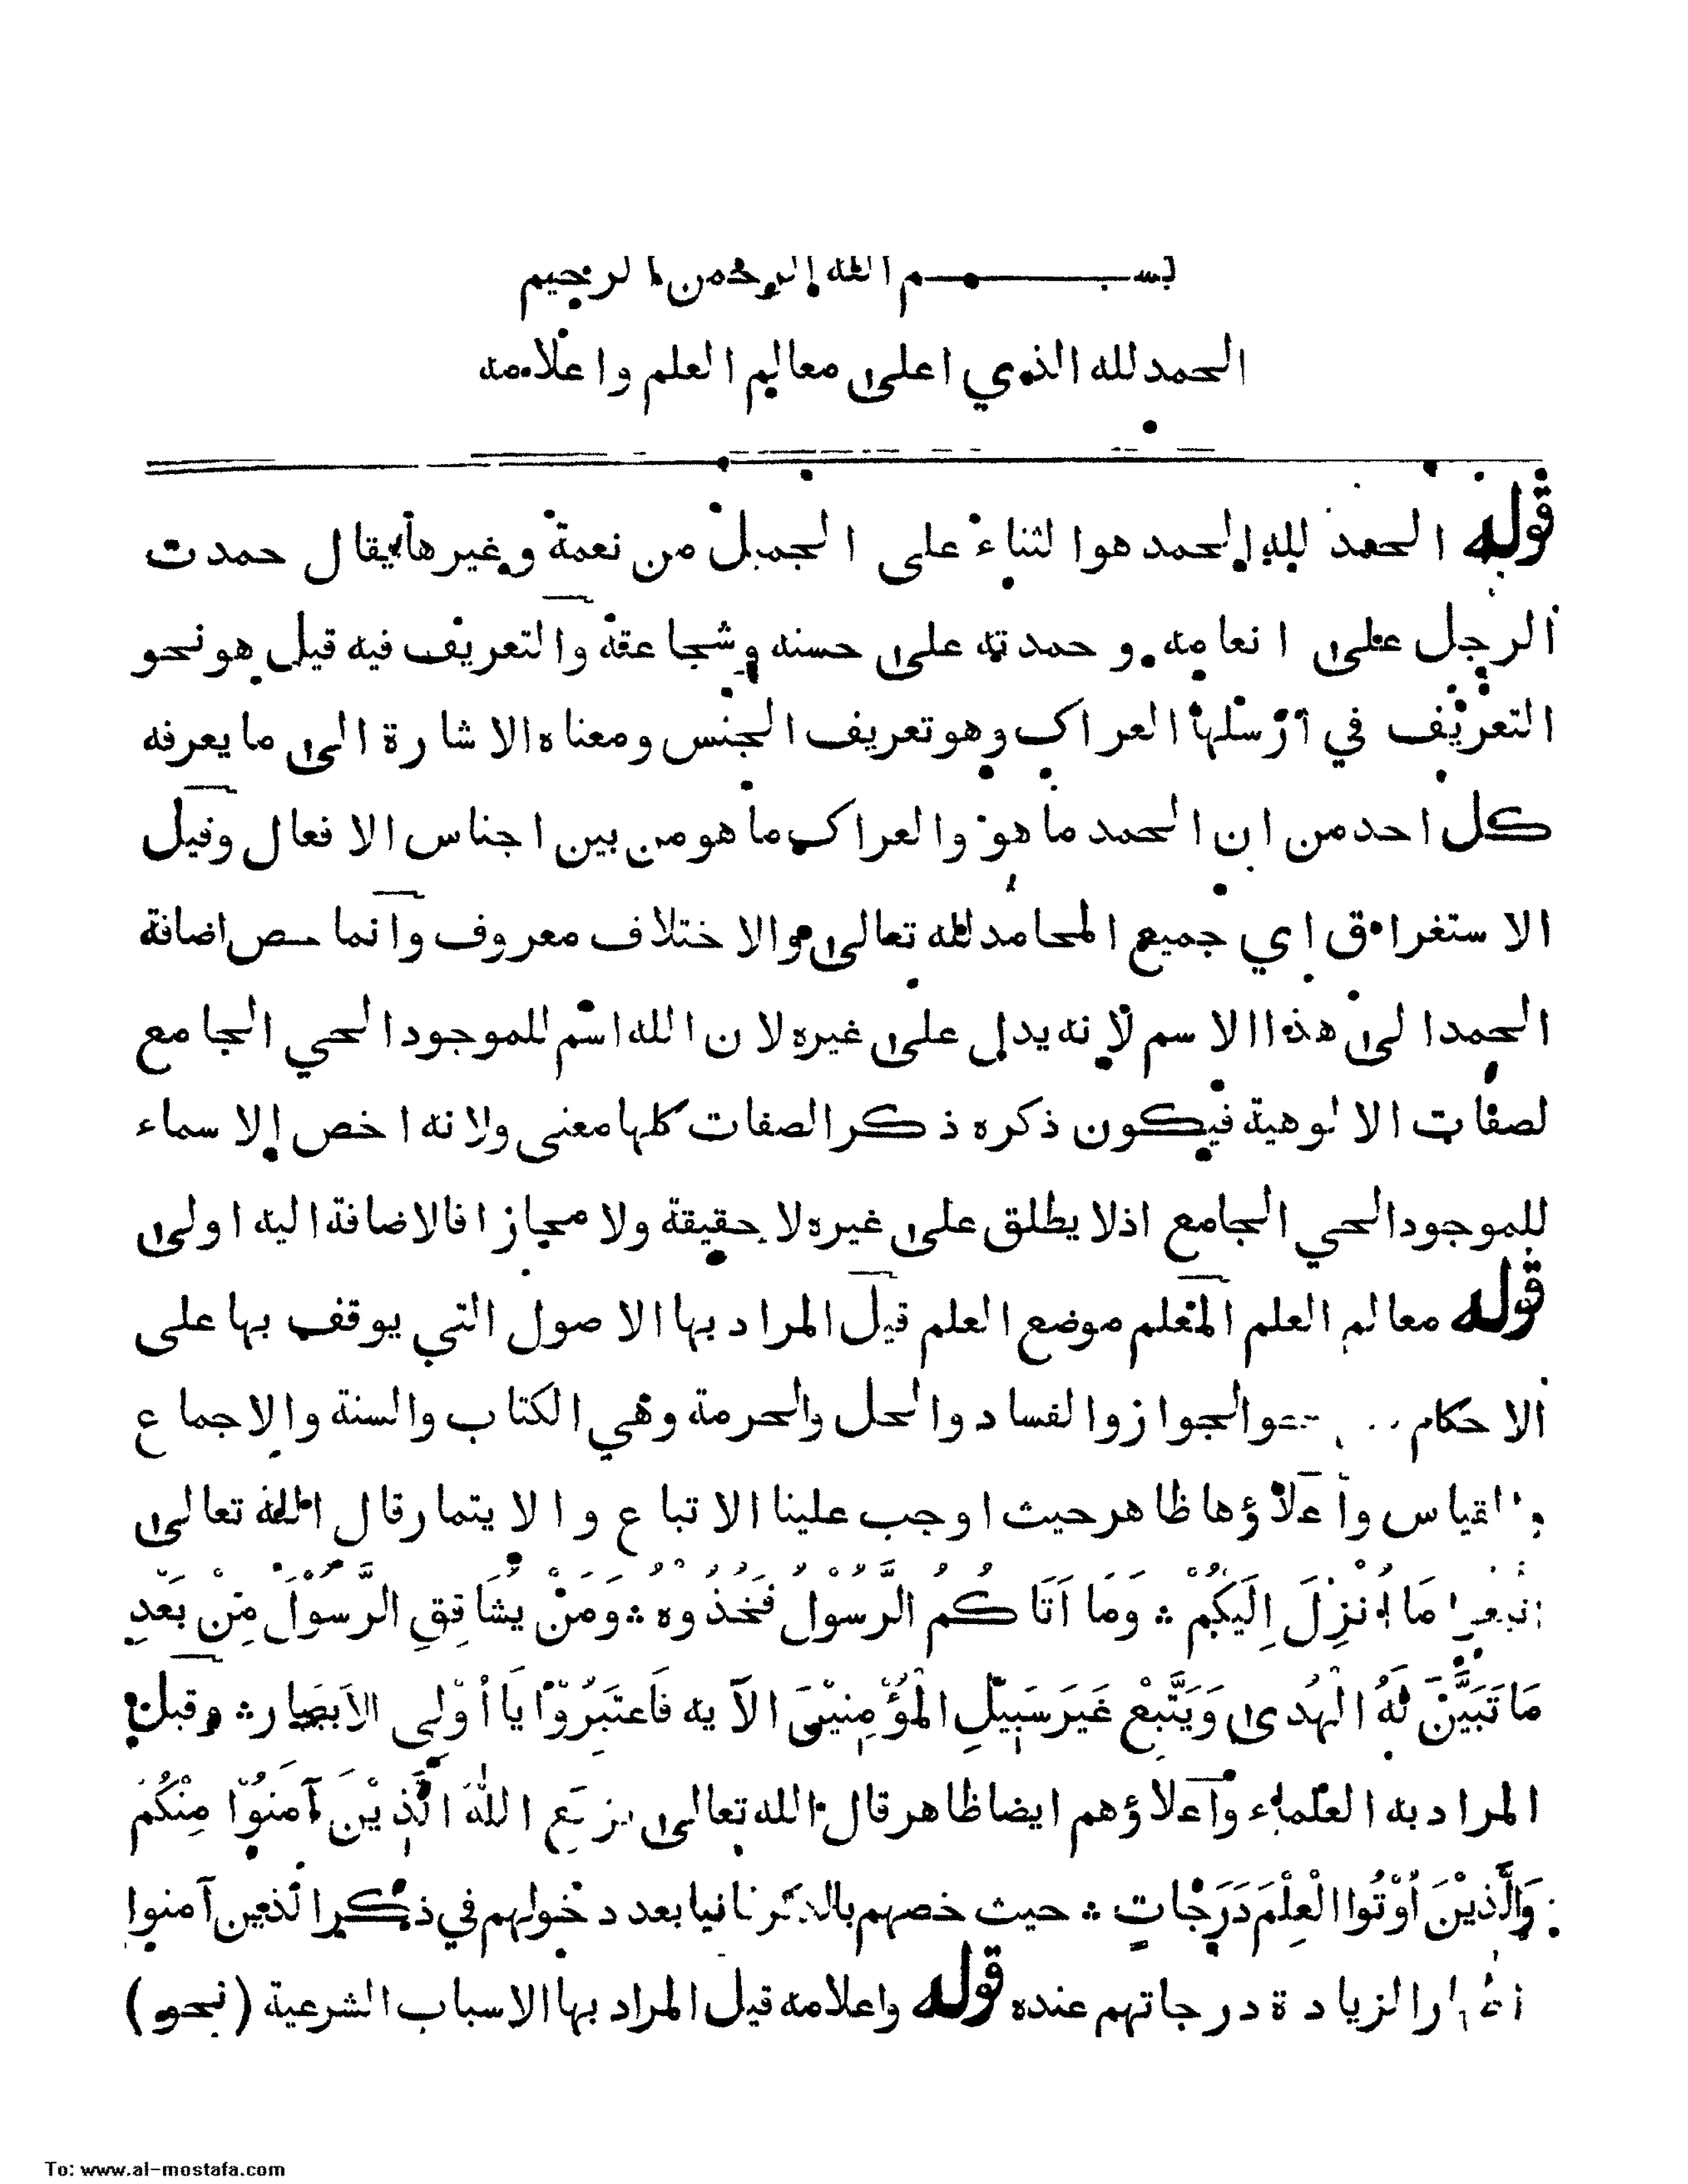 بســـم الله الرحمن الرحيم
الحمد لله الذي اعلى معالم العلم واعلامه
قوله الحمد لله الحمد هو الثناء على الجميل من نعمة وغيرها يقال حمدت
الرجل على انعامه و حمدته على حسنه وشجاعته والتعريف فيه قيل هو نحو
التعريف في ارسلها العراك وهو تعريف الجنس ومعناه الاشارة الى ما يعرفه
كل احد من ان الحمد ما هو والعراك ما هو من بين اجناس الافعال وقيل
الاستغراق اي جميع المحامد لله تعالى والاختلاف معروف وانما اضافة
الحمد الى هذا الاسم لانه يدل على غيره لان الله اسم للموجود الحي الجامع
لصفات الالوهية فيكون ذكره ذكر الصفات كلها معنى ولانه اخص الاسماء
للموجود الحي الجامع اذلا يطلق على غيره لا حقيقة ولا مجازا فالاضافة اليه اولى
قوله معالم العلم المعلم موضع العلم قيل المراد بها الاصول التي يوقف بها على
الاحكام والجواز والفساد والحل والحرمة وهي الكتاب والسنة والاجماع
والقياس واعلاؤها ظاهر حيث اوجب علينا الاتباع والايتمار قال الله تعالى
مَا اُنْزِلَ اِلَيْكُمْ ؞ وَمَا اَتَاكُمُ الرَّسُوْلُ فَخُذُوْهُ ؞ وَمَنْ يُشَاقِقِ الرَّسُوْلَ مِنْ بَعْدِ
مَا تَبَيَّنَ لَهُ الْهُدى وَيَتَّبِعْ غَيْرَ سَبِيْلِ الْمُؤْمِنِيْنَ الآيه فَاعْتَبِرُوْا يَا اُوْلِى الاَبْصَار ؞ وقيل
المراد به العلماء واعلاؤهم ايضا ظاهر قال الله تعالى اللهُ الَّذِيْنَ آمَنُوْا مِنْكُمْ
وَالَّذِيْنَ اُوْتُوا الْعِلْمَ دَرَجَاتٍ ؞ حيث خصهم بالذكر ثانيا بعد دخولهم في ذكر الذين آمنوا
لزيادة درجاتهم عنده قوله واعلامه قيل المراد بها الاسباب الشرعية (نحو)
To: www.al-mostafa.com